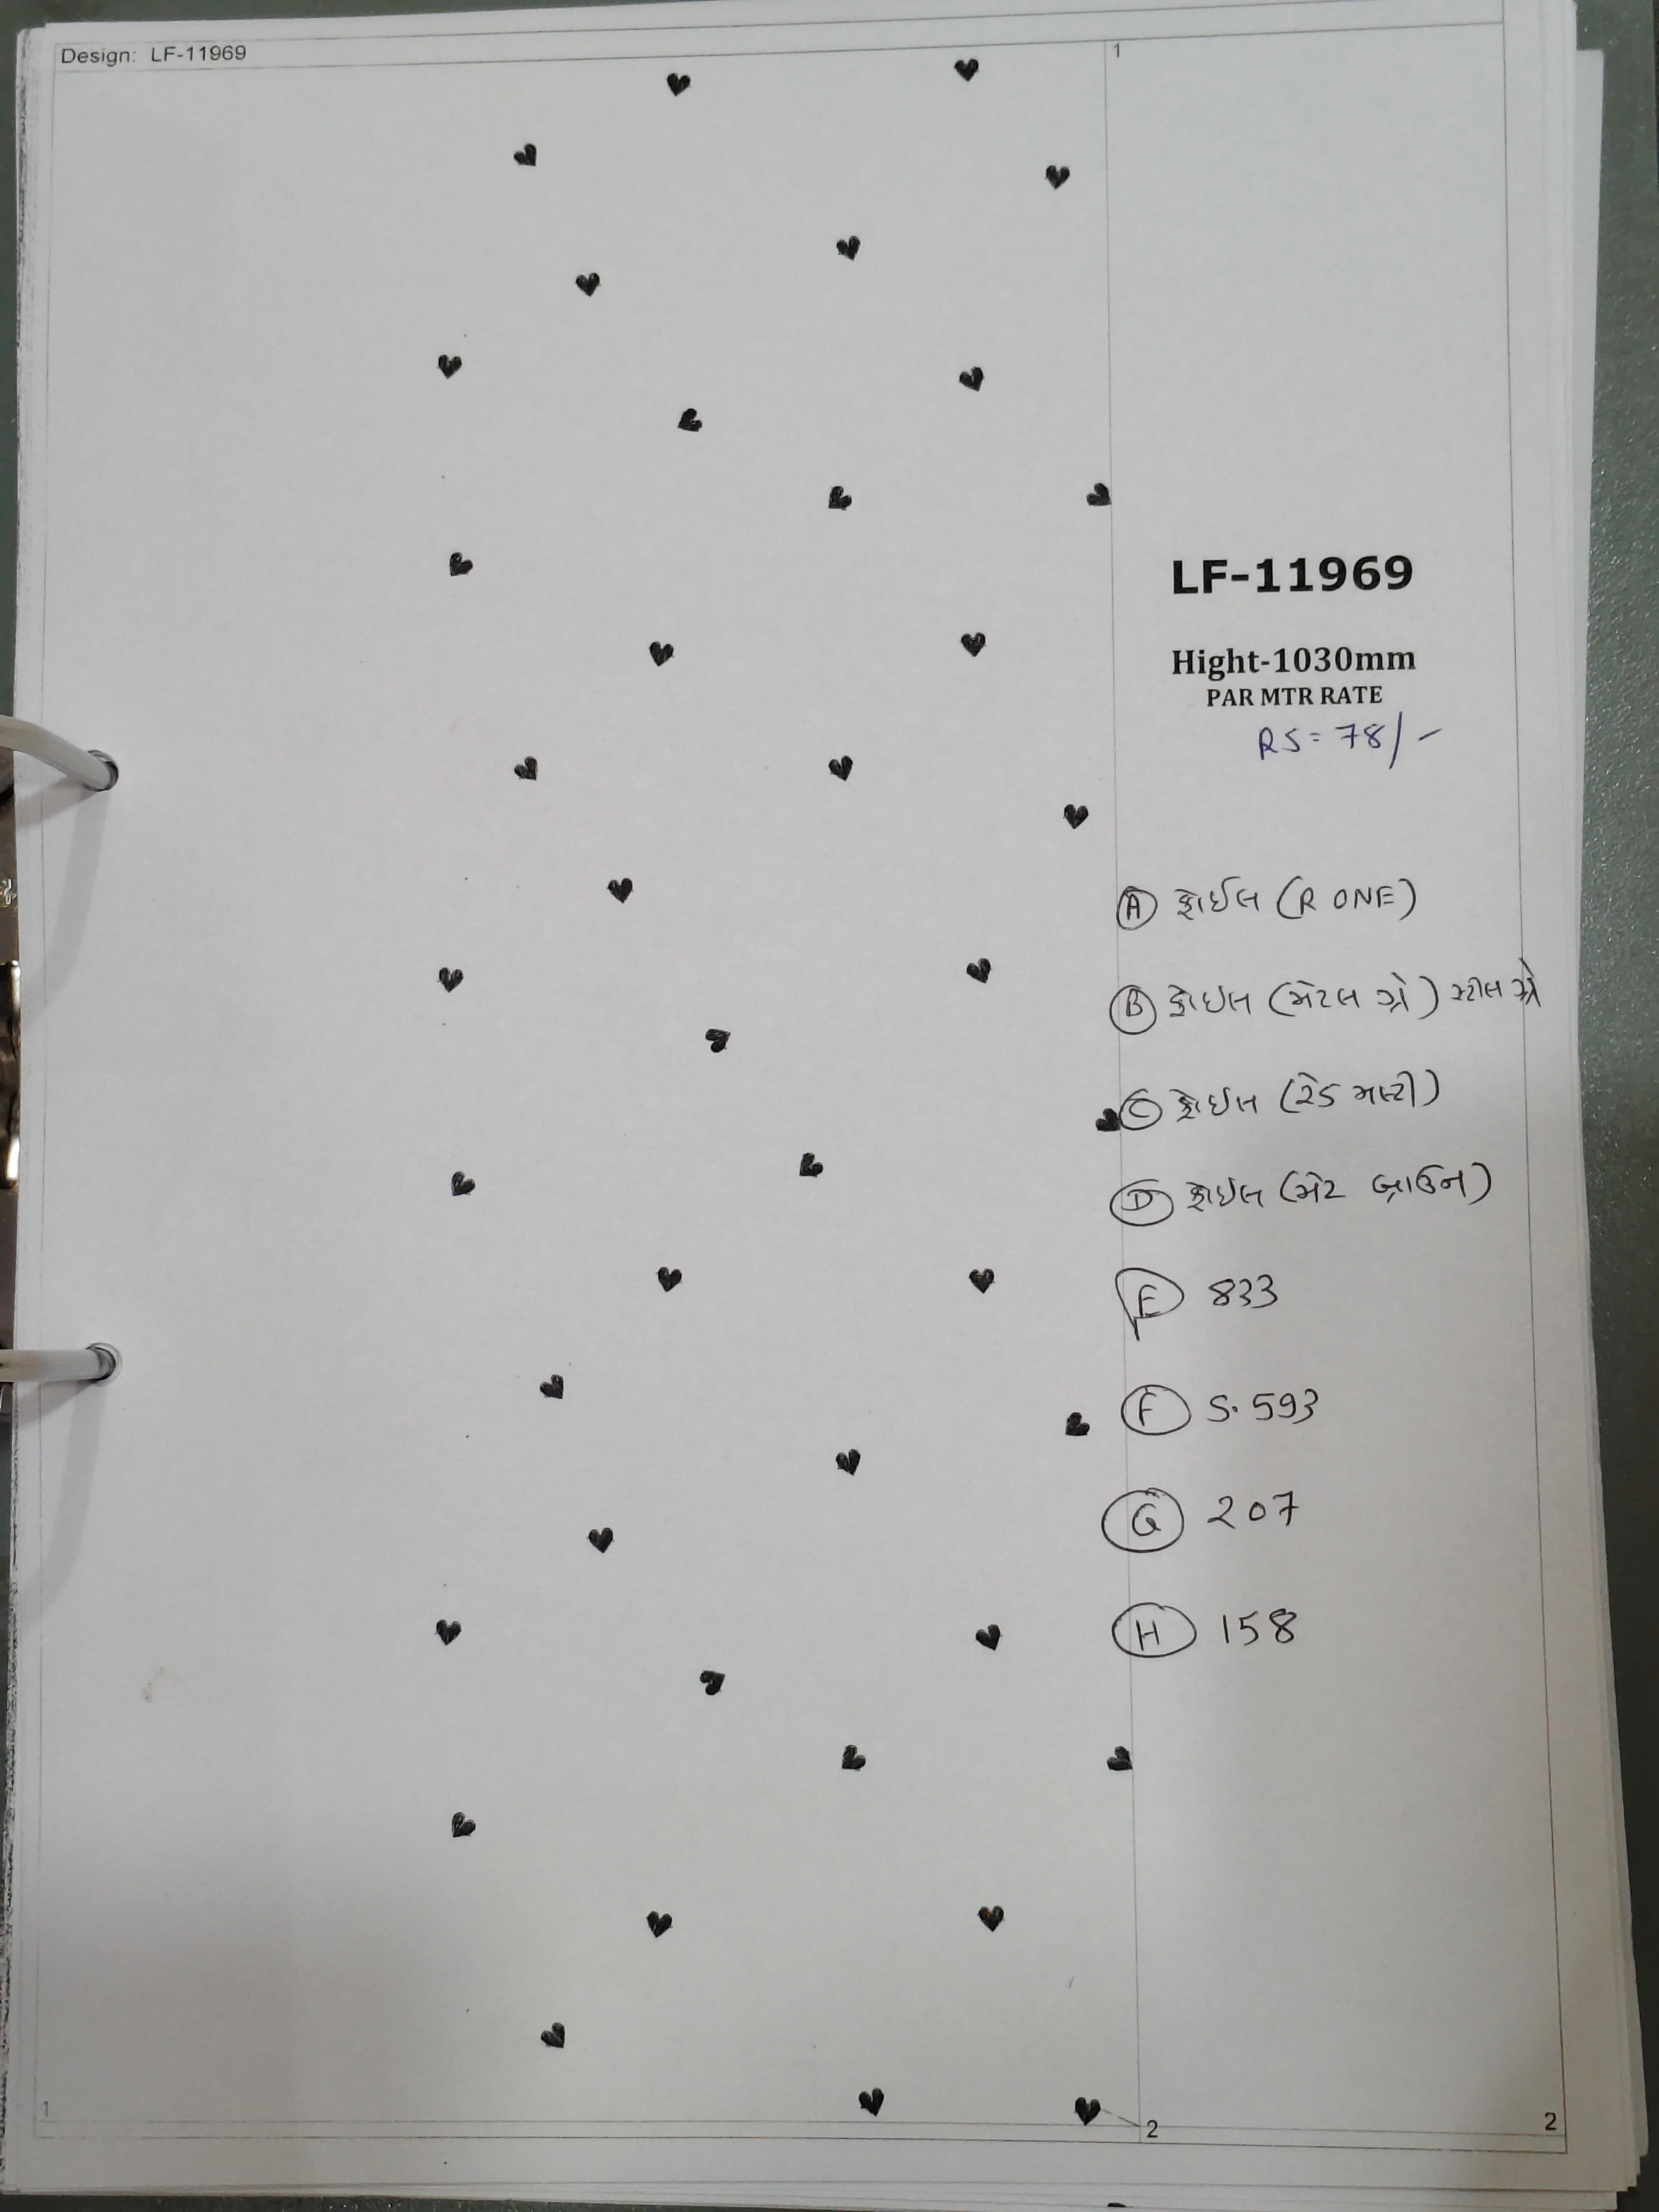 Design: LF-11969
1
LF-11969
Hight-1030mm
PAR MTR RATE
RS=78/-
A ફોઈલ (R ONE)
B ફોઈલ (મેટલ ગ્રે) સ્ટીલ ગ્રે
C ફોઈલ (રેડ મલ્ટી)
D ફોઈલ (મેટ બ્રાઉન)
E 833
F S.593
G 207
H 158
1
2
2